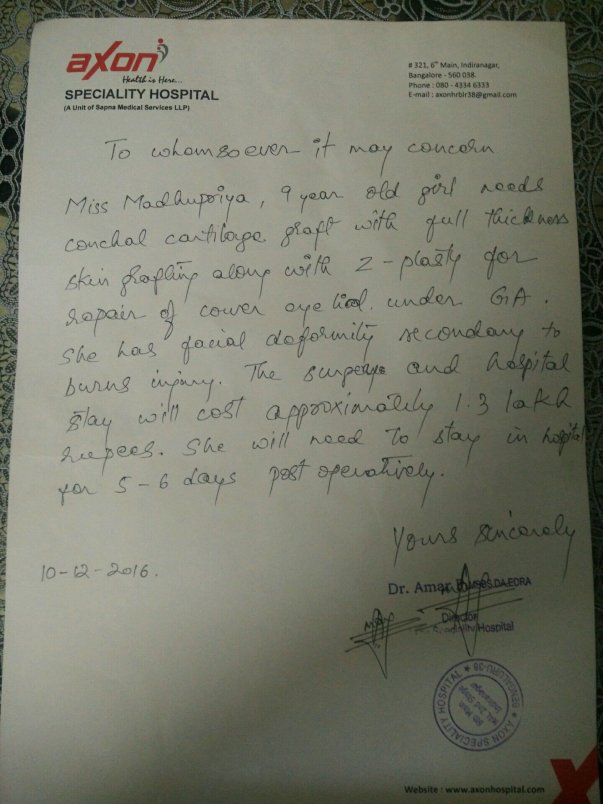 axon
Health is Here...
SPECIALITY HOSPITAL
(A Unit of Sapna Medical Services LLP)
# 321, 6th Main, Indiranagar,
Bangalore - 560 038.
Phone : 080 - 4334 6333
E-mail : axonhrblr38@gmail.com
To whomsoever it may concern
Miss Madhupriya, 9 year old girl needs
conchal cartilage graft with full thickness
skin grafting along with Z-plasty for
repair of lower eye lid under GA.
She has facial deformity secondary to
burns injury. The surgery and hospital
stay will cost approximately 1.3 lakh
rupees. She will need to stay in hospital
for 5-6 days post operatively.
Yours sincerely
10-12-2016.
Dr. Amar
Director
Speciality Hospital
AXON SPECIALITY HOSPITAL ★ BENGALURU-38 ★
6th Main
HAL 2nd Stage
Indiranagar
Website : www.axonhospital.com